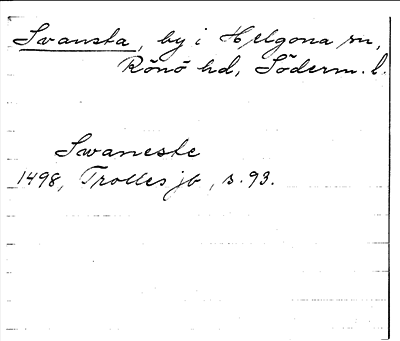 Svansta, by i Helgona sn,
Rönö hd, Söderm. l.
Swaneste
1498, Trolles jb, s. 93.